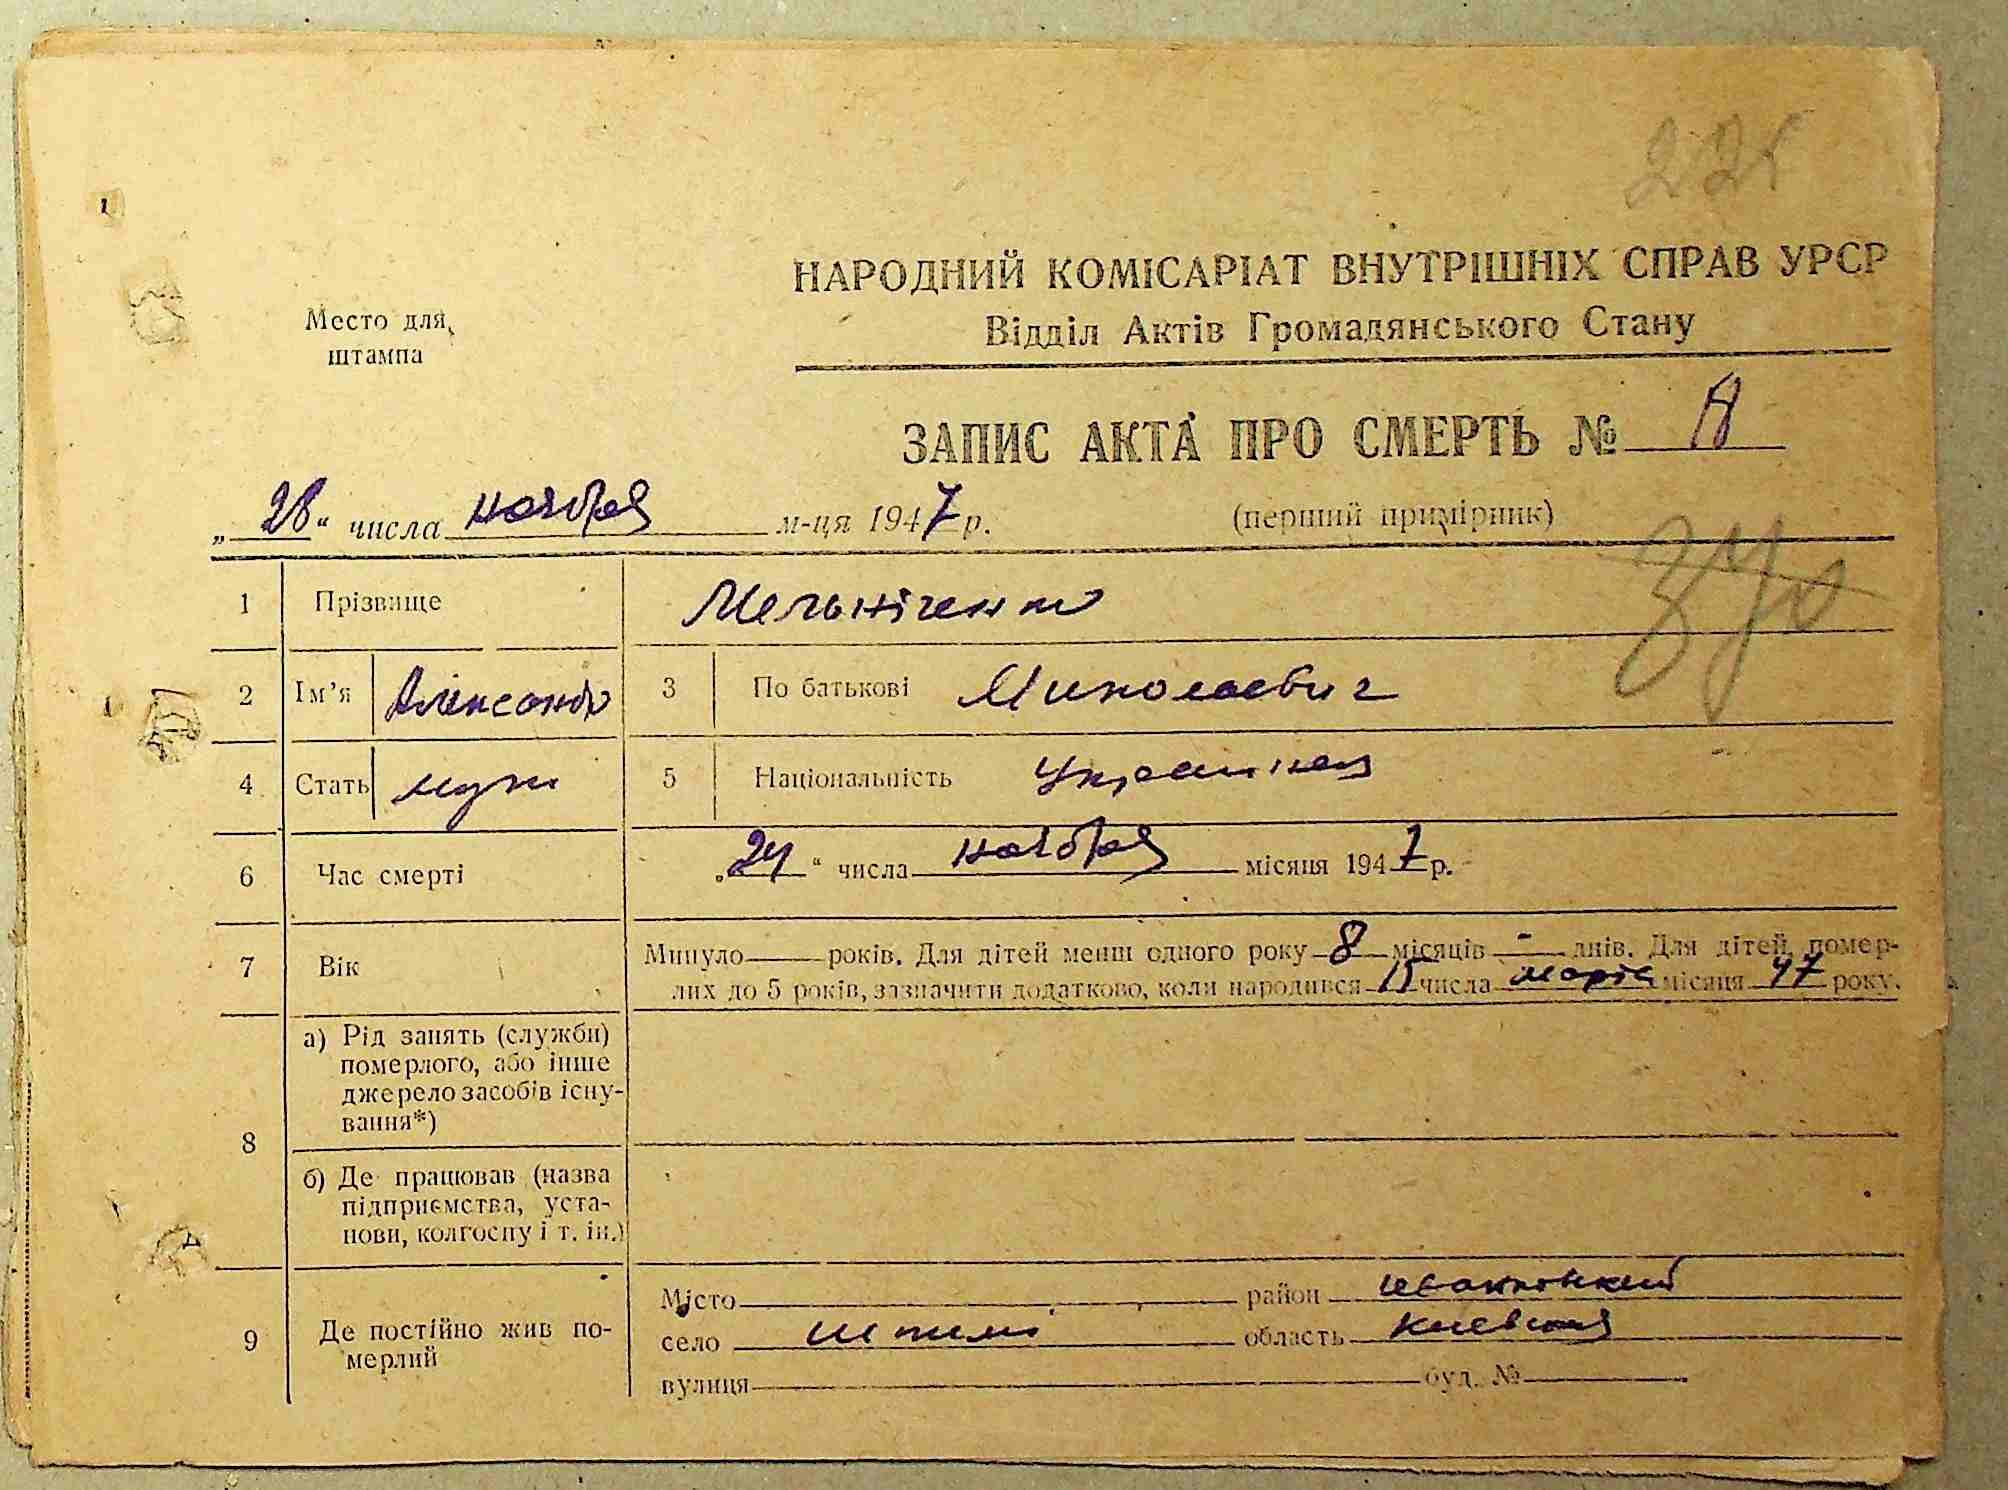 Место для
штампа
НАРОДНИЙ КОМІСАРІАТ ВНУТРІШНІХ СПРАВ УРСР
Відділ Актів Громадянського Стану
ЗАПИС АКТА ПРО СМЕРТЬ №
„ 28 “ числа ноября м-ця 1947 р. (перший примірник)
1 Прізвище Мельніченко
2 Ім'я Александр 3 По батькові Миколаевич
4 Стать муж 5 Національність
6 Час смерті „ 24 “ числа ноября місяця 1947 р.
7 Вік Минуло року років. Для дітей менш одного року 8 місяців - днів. Для дітей, помер-
лих до 5 років, зазначити додатково, коли народився 15 числа марта місяця 47 року.
8 а) Рід занять (служби)
померлого, або інше
джерело засобів існу-
вання*)
б) Де працював (назва
підприємства, уста-
нови, колгоспу і т. ін.)
9 Де постійно жив по-
мерлий
Місто район
село область Киевская
вулиця буд. №